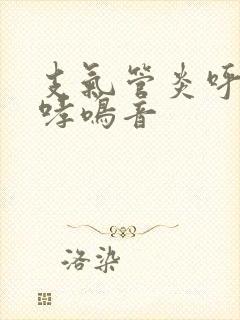 支氣管炎呼
哮鳴音
洛染